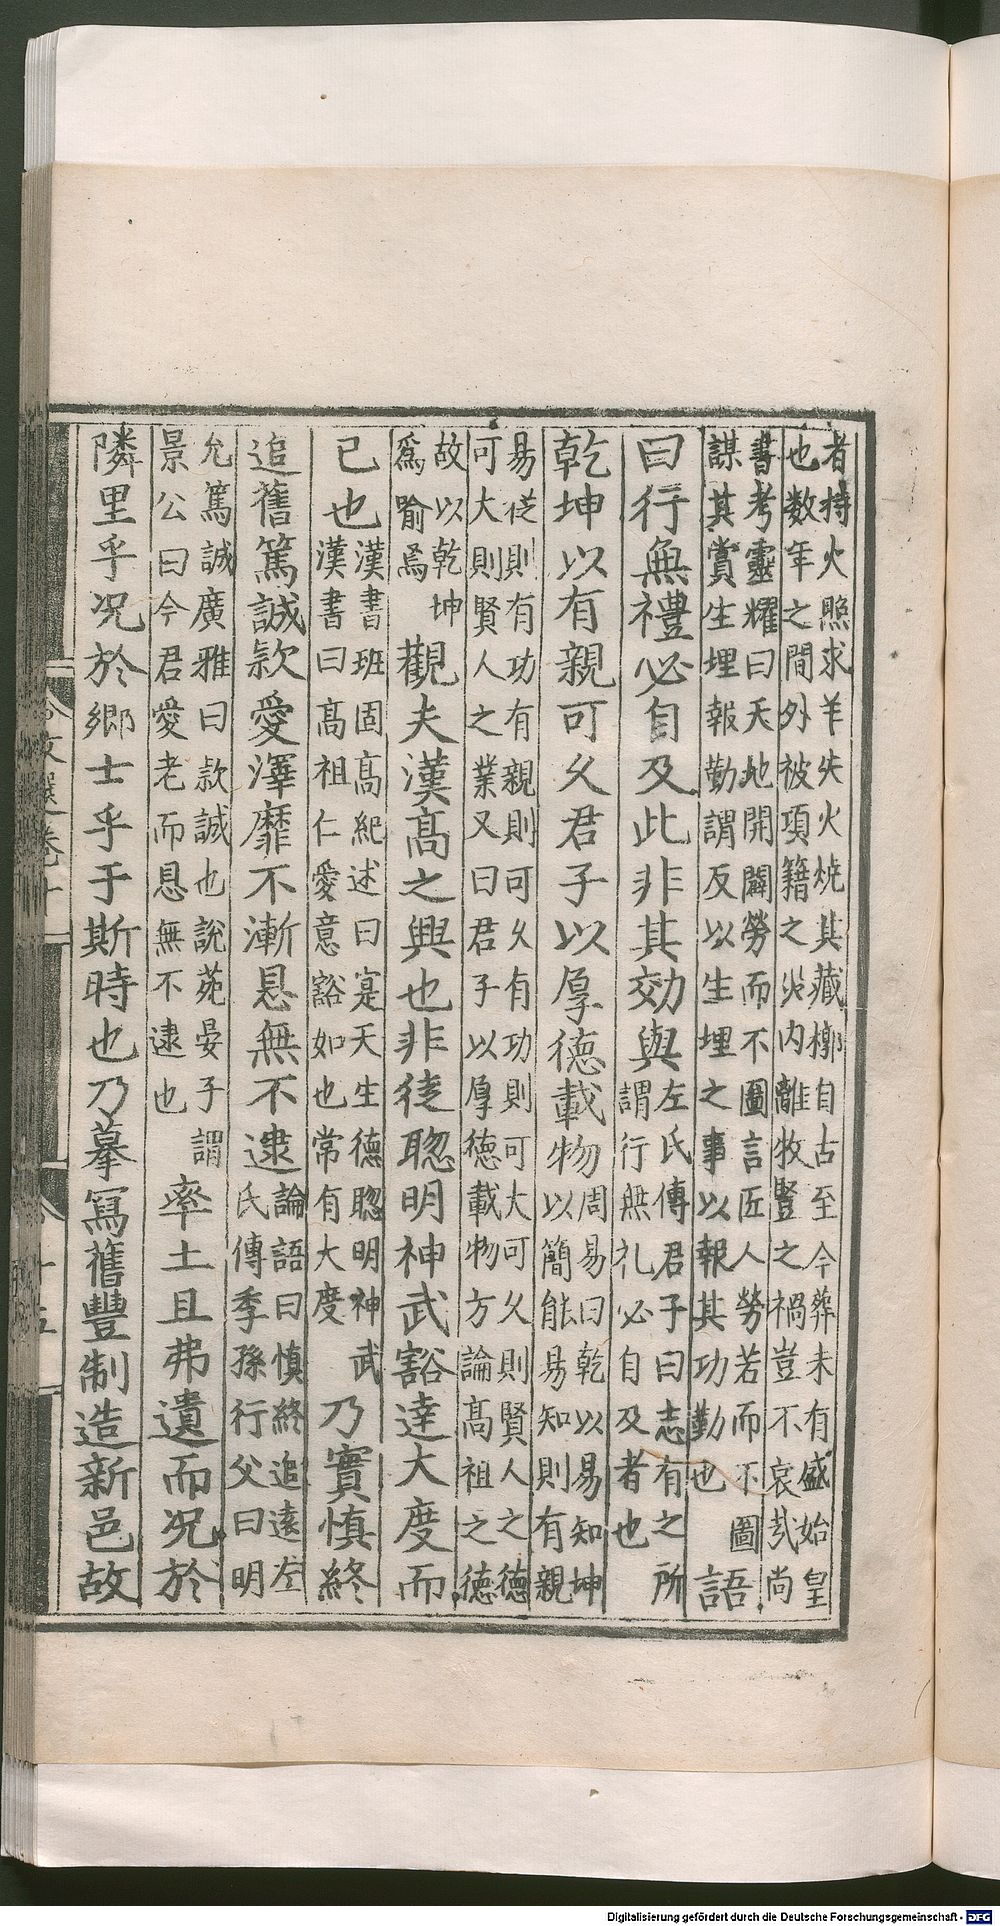 者持火照求羊失火燒其藏槨自古至今葬未有盛始皇
也數年之間外被項籍之災內離牧豎之禍豈不哀哉尚
書考靈耀曰天地開闢勞而不圖言匠人勞若而不圖
謀其賞生埋報勤謂反以生埋之事以報其功勤也
語
曰行無禮必自及此非其効與
左氏傳君子曰志有之所
謂行無礼必自及者也
乾坤以有親可久君子以厚德載物
周易曰乾以易知坤
以簡能易知則有親
易從則有功有親則可久有功則可大可久則賢人之德
可大則賢人之業又曰君子以厚德載物方論高祖之德
故以乾坤
爲喻焉
觀夫漢高之興也非徒聦明神武豁達大度而
已也
漢書班固高紀述曰寔天生德聦明神武
漢書曰高祖仁愛意豁如也常有大度
乃實慎終
追舊篤誠款愛澤靡不漸恩無不逮
論語曰慎終追遠左
氏傳季孫行父曰明
允篤誠廣雅曰款誠也說苑晏子謂
景公曰今君愛老而恩無不逮也
率土且弗遺而况於
隣里乎况於鄉士乎于斯時也乃摹冩舊豐制造新邑故
文選卷十
十五
Digitalisierung gefördert durch die Deutsche Forschungsgemeinschaft - DFG